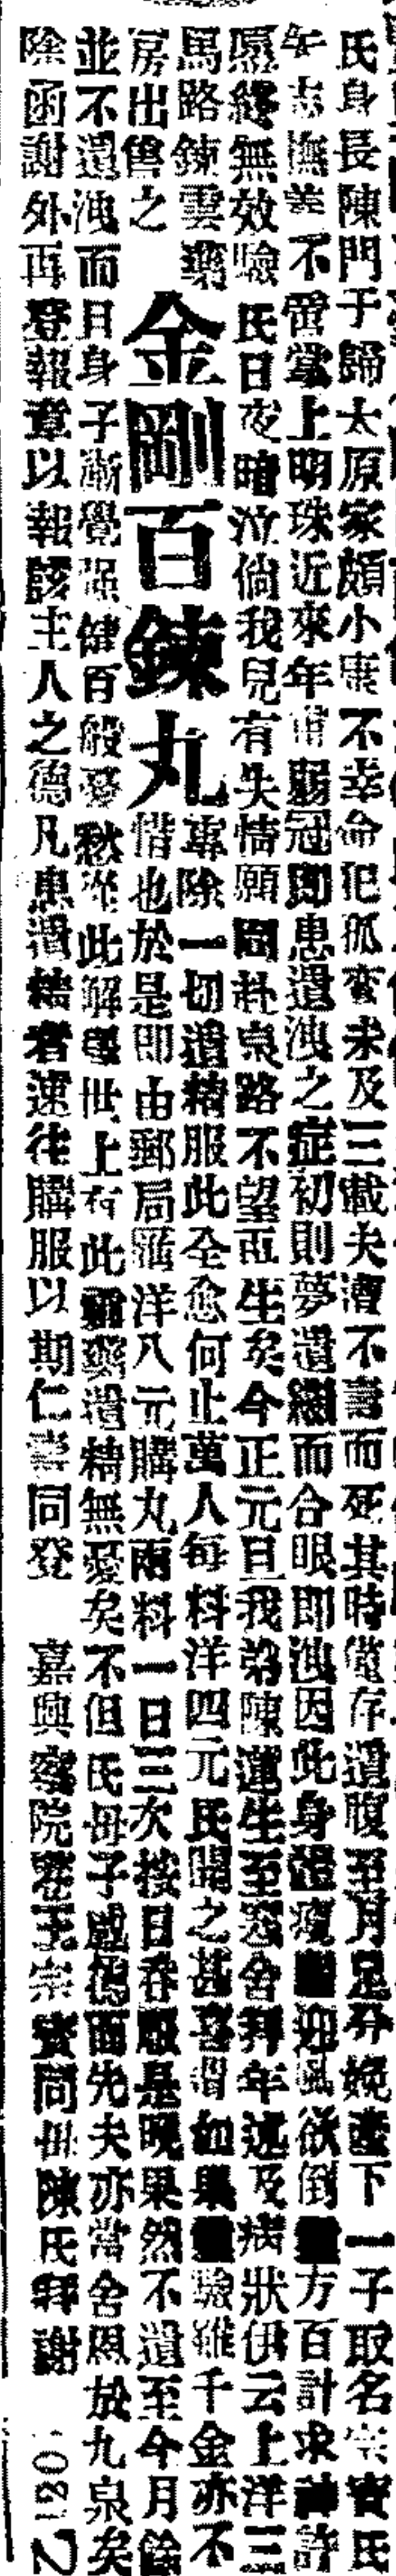 氏身長陳門于歸太原家頗小康不幸命犯孤鸞未及三載夫遭不壽而死其時僅存遺腹至月足分娩產下一子取名宗寶氏
午志撫養不啻掌上明珠近來年甫弱冠即患遺洩之症初則夢遺繼而合眼即洩因此身體瘦迎風欲倒方百計求神許
愿終無效驗氏日夜暗泣倘我兒有失情願同赴泉路不望再生矣今正元旦我弟陳蓮生至寒舍拜年述及病狀伊云上洋三
馬路錬雲藥
房出售之
金剛百錬丸
專除一切遺精服此全愈何止萬人每料洋四元氏聞之甚喜謂如果靈驗雖千金亦不
惜也於是即由郵局滙洋八元購丸兩料一日三次按日吞服是晚果然不遺至今月餘
並不遺洩而且身子漸覺强健百般憂愁從此解與世上有此靈藥遺精無憂矣不但氏母子感德面先夫亦當含恩於九泉矣
除函謝外再登報章以報該主人之德凡患遺精者速往購服以期仁壽同登 嘉興察院巷王宗寶同母陳氏拜謝